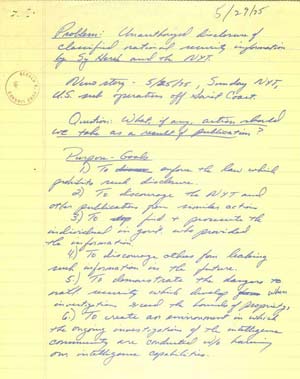 5/29/75
Problem: Unauthorized disclosure of
classified national security information
by Sy Hersh and the NYT.
News story - 5/25/75, Sunday NYT,
U.S. sub operations off Soviet Coast.
Question: What, if any, action should
we take as a result of publication?
Purpose - Goals
1) To enforce the law which
prohibits such disclosure.
2) To discourage the NYT and
other publications from similar action
3) To find & prosecute the
individual in govt. who provided
the information
4) To discourage others from leaking
such information in the future.
5) To demonstrate the dangers to
natl security which develop when
investigations exceed the bounds of propriety.
6) To create an environment in which
the ongoing investigation of the intelligence
community are conducted w/o harming
our intelligence capabilities.